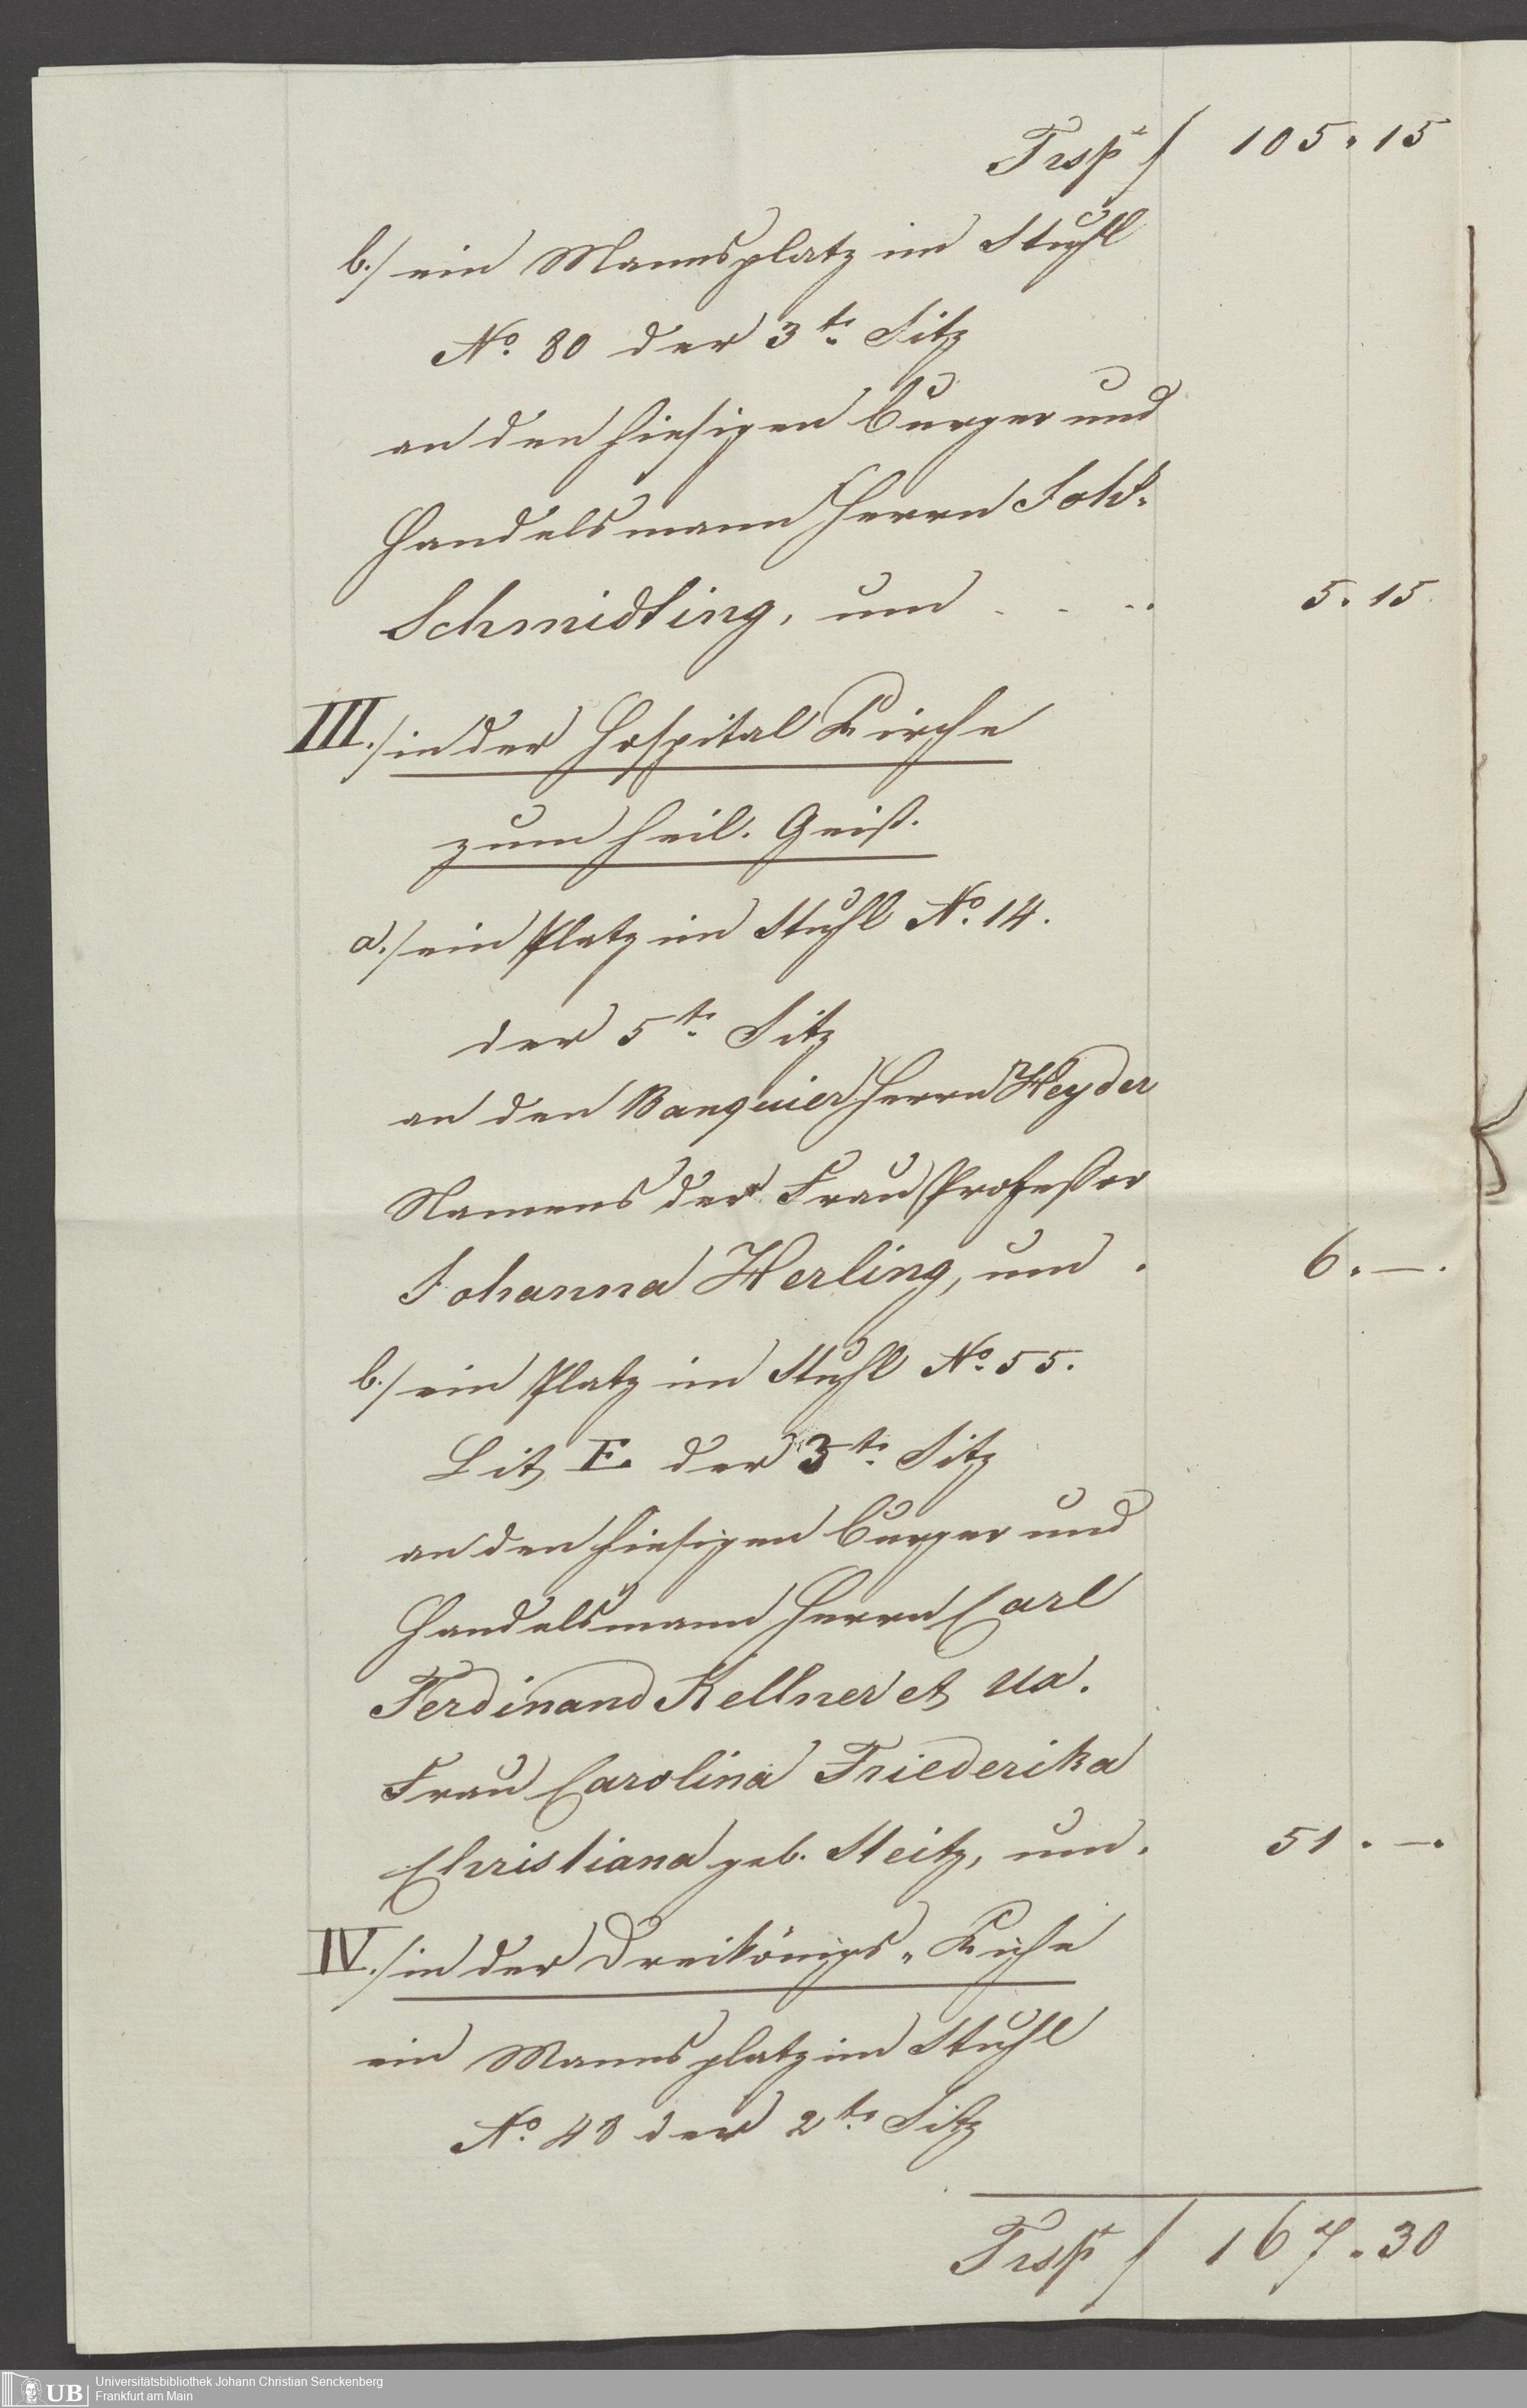 Trspt f 105. 15
b./ ein Mannsplatz im Stuhl
No. 80 der 3te Sitz
an den hiesigen Burger und
Handelsmann Herrn Joh.
Schmidting, um . . . . 5. 15.
III./ in der Hospital Kirche
zum heil. Geist.
a./ ein Platz im Stuhl No. 14.
der 5te Sitz
an den Banquier Herrn Heyder
Namens der Frau Professor
Johanna Herling, um . 6. —.
b./ ein Platz im Stuhl No. 55.
Lit E der 3te Sitz
an den hiesigen Burger und
Handelsmann Herrn Carl
Ferdinand Kellner et ua.
Frau Carolina Friederika
Christiana geb. Steitz, um . 51. —.
IV./ in der Dreikönigs-Kirche
ein Mannsplatz im Stuhl
No. 48 der 2te Sitz
Trspt f 167. 30
UB Universitätsbibliothek Johann Christian Senckenberg
Frankfurt am Main